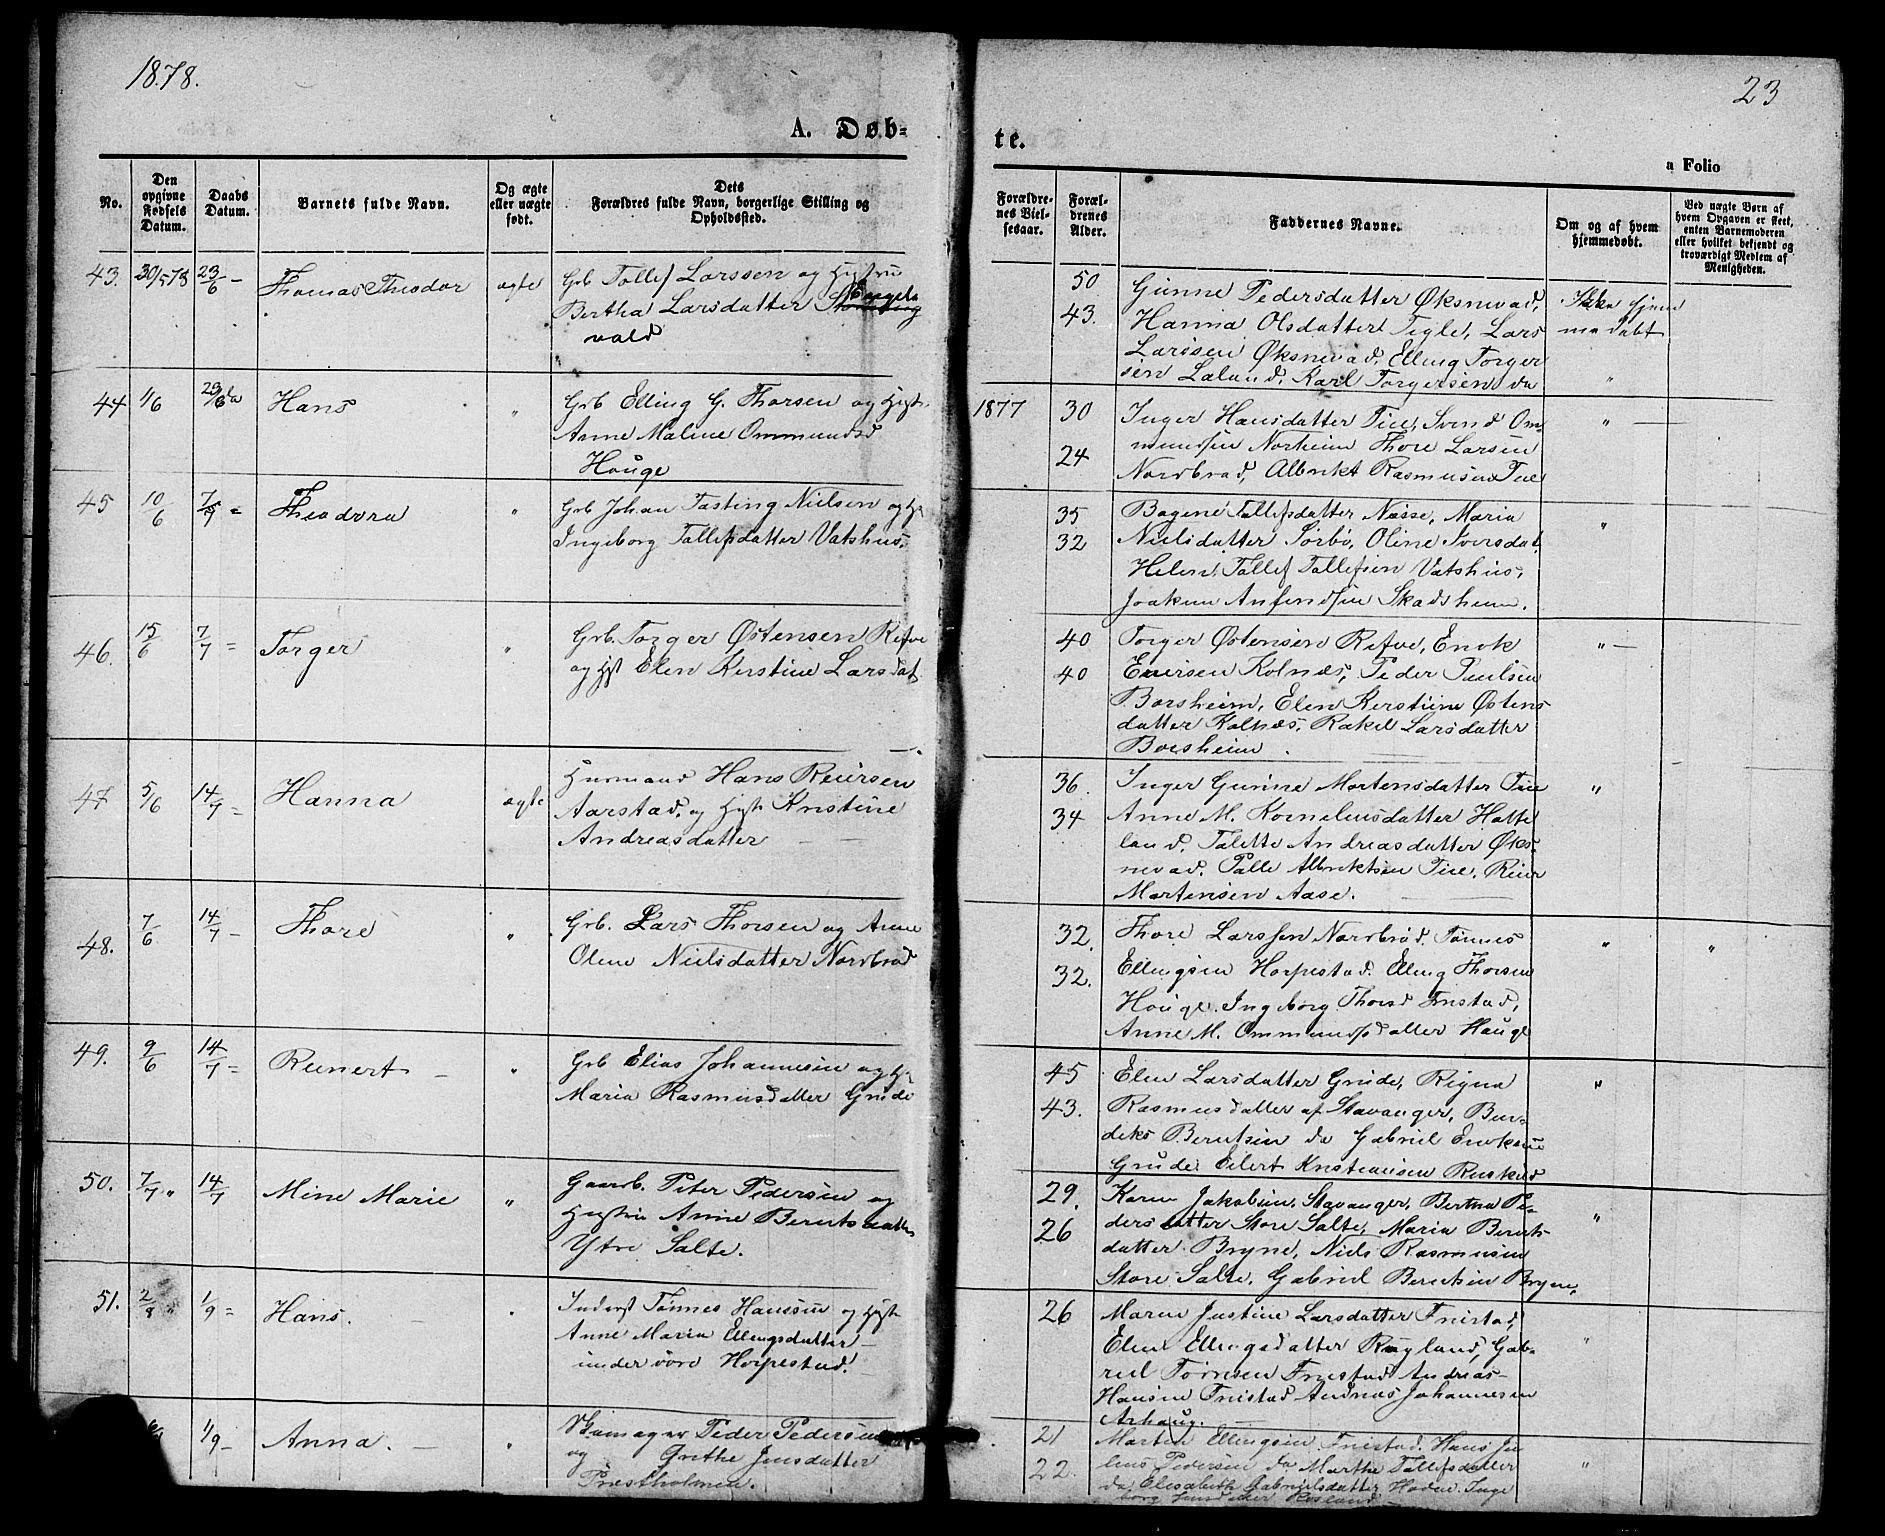 1878.
23
A. Døb-
te.
a Folio
No.
Den opgivne Fødsels Datum.
Daabs Datum.
Barnets fulde Navn.
Og ægte eller uægte født.
Dets Forældres fulde Navn, borgerlige Stilling og Opholdssted.
Forældrenes Vielsesaar.
Forældrenes Alder.
Faddernes Navne.
Om og af hvem hjemmedøbt.
Ved uægte Børn af hvem Opgaven er skeet, enten Barnemoderen eller hvilket bekjendt og troværdigt Medlem af Menigheden.
43. 30/5 78 23/6 - Thomas Theodor ægte Grb Tollef Larssen og Hustru
Bertha Larsdatter Engels
vold
50 Gunne Pedersdatter Øksnevad,
43. Hanna Olsdatter Tegle, Lars
Larssen Øksnevad, Elling Torger
sen Laland, Karl Torgersen da
Ikke hjem
medøbt
44 1/6 23/6 da Hans " Grb Elling G. Thorsen og Hust.
Anne Maline Ommundsd
Houge
1877 30 Inger Hansdatter Tue, Svend Om-
mundsen Norheim Thore Larsen
24 Nordbrød, Albrikt Rasmussen Tue
"
45 10/6 7/7 = Theodora " Grb Johan Tasting Nielsen og H
Ingeborg Tollefsdatter Vatshus.
35 Bogene Tollefsdatter Næsse, Maria
32 Nielsdatter Sørbø, Oline Iversdat.
Helen, Tollef Tollefsen Vatshus,
Joakim Anfindsen Skadsheim.
"
46. 15/6 7/7 = Torger " Grb. Torger Østensen Refve
og Hst Elen Kerstine Larsdat
40 Torger Østensen Refve, Enok
40 Enersen Kolnes, Peder Paulsen
Borsheim, Elen Kerstine Østens
datter Kolnes, Rakel Larsdatter
Borsheim.
"
47 5/6 14/7 = Hanna ægte Husmand Hans Reiersen
Aarstad, og Hust Kristine
Andreasdatter
36. Inger Gunne Mortensdatter Tue
34 Anne M. Kornelius datter Hatte
land. Talette Andreasdatter Øks-
nevad, Tolle Albriktsen Tue, Reier
Martensen Aase.
"
48. 7/6 14/7 - Thore " Grb. Lars Thorsen og Anne
Oline Nielsdatter Nordbrød
32. Thore Larssen Nordbrød. Tønnes
32. Ellingsen Horpestad. Elling Thorsen
Houge. Ingeborg Thorsd Friestad,
Anne M. Ommundsdatter Hauge
" "
49. 9/6 14/7 = Reinert - " Grb Elias Johannesen og H
Maria Rasmusdatter Grude
45 Elen Larsdatter Grude, Rigna
43. Rasmusdatter af Stavanger, Ben-
diks Berntsen da Gabriel Enoksen
Grude. Eilert Kristiansen
"
50. 7/7 " 14/7 Mine Marie " Gaardb. Peter Pedersen og
Hustru Anne Berntsdatter
Ytre Salte.
29. Karen Jakobsen, Stavanger, Bertha Pe-
26 dersdatter Store Salte, Maria Bernts
datter Bryne, Niels Rasmussen
Store Salte, Gabriel Berntsen Bryne,
"
51. 2/8 " 1/9 = Hans. " Inderst Tønnes Hanssen og Hust
Anne Maria Ellingsdatter
under øvre Horpestad.
26 Maren Justine Larsdatter Friestad,
Elen Ellingsdatter Rugland, Gab-
riel Tønnesen Friestad Andreas
Hansen Friestad Andreas Johannesen
Arhaug.
"
1/9 - Anna. - " Skomager Peder Pedersen
og Grethe Jensdatter
Prestholmen.
21 Marten Ellingsen Friestad. Hans Ju
22. lius Pedersen da Marthe Tollefsdatter
da Elisabeth Gabrielsdatter Hodne. Inge
borg
"